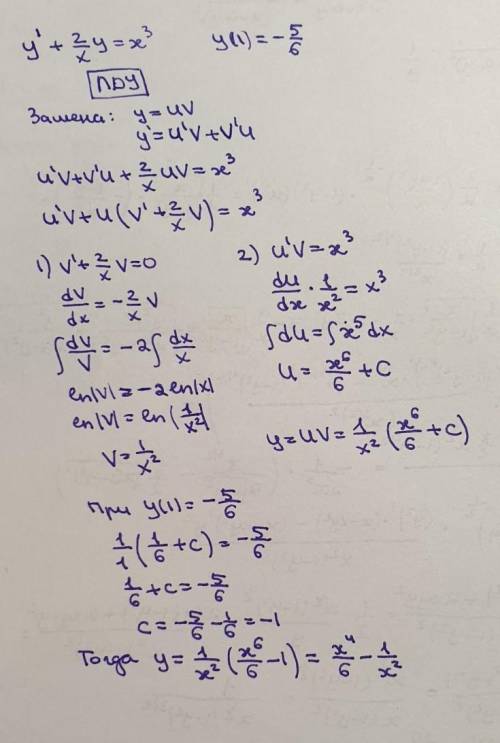 y' + 2/x y = x³    y(1) = -5/6
ЛДУ
Замена: y = uv
y' = u'v + v'u
u'v + v'u + 2/x uv = x³
u'v + u(v' + 2/x v) = x³
1) v' + 2/x v = 0
dv/dx = -2/x v
∫ dv/v = -2 ∫ dx/x
ln|v| = -2 ln|x|
ln|v| = ln|1/x²|
v = 1/x²
2) u'v = x³
du/dx · 1/x² = x³
∫ du = ∫ x⁵ dx
u = x⁶/6 + C
y = uv = 1/x² (x⁶/6 + C)
При y(1) = -5/6
1/1 (1/6 + C) = -5/6
1/6 + C = -5/6
C = -5/6 - 1/6 = -1
Тогда y = 1/x² (x⁶/6 - 1) = x⁴/6 - 1/x²